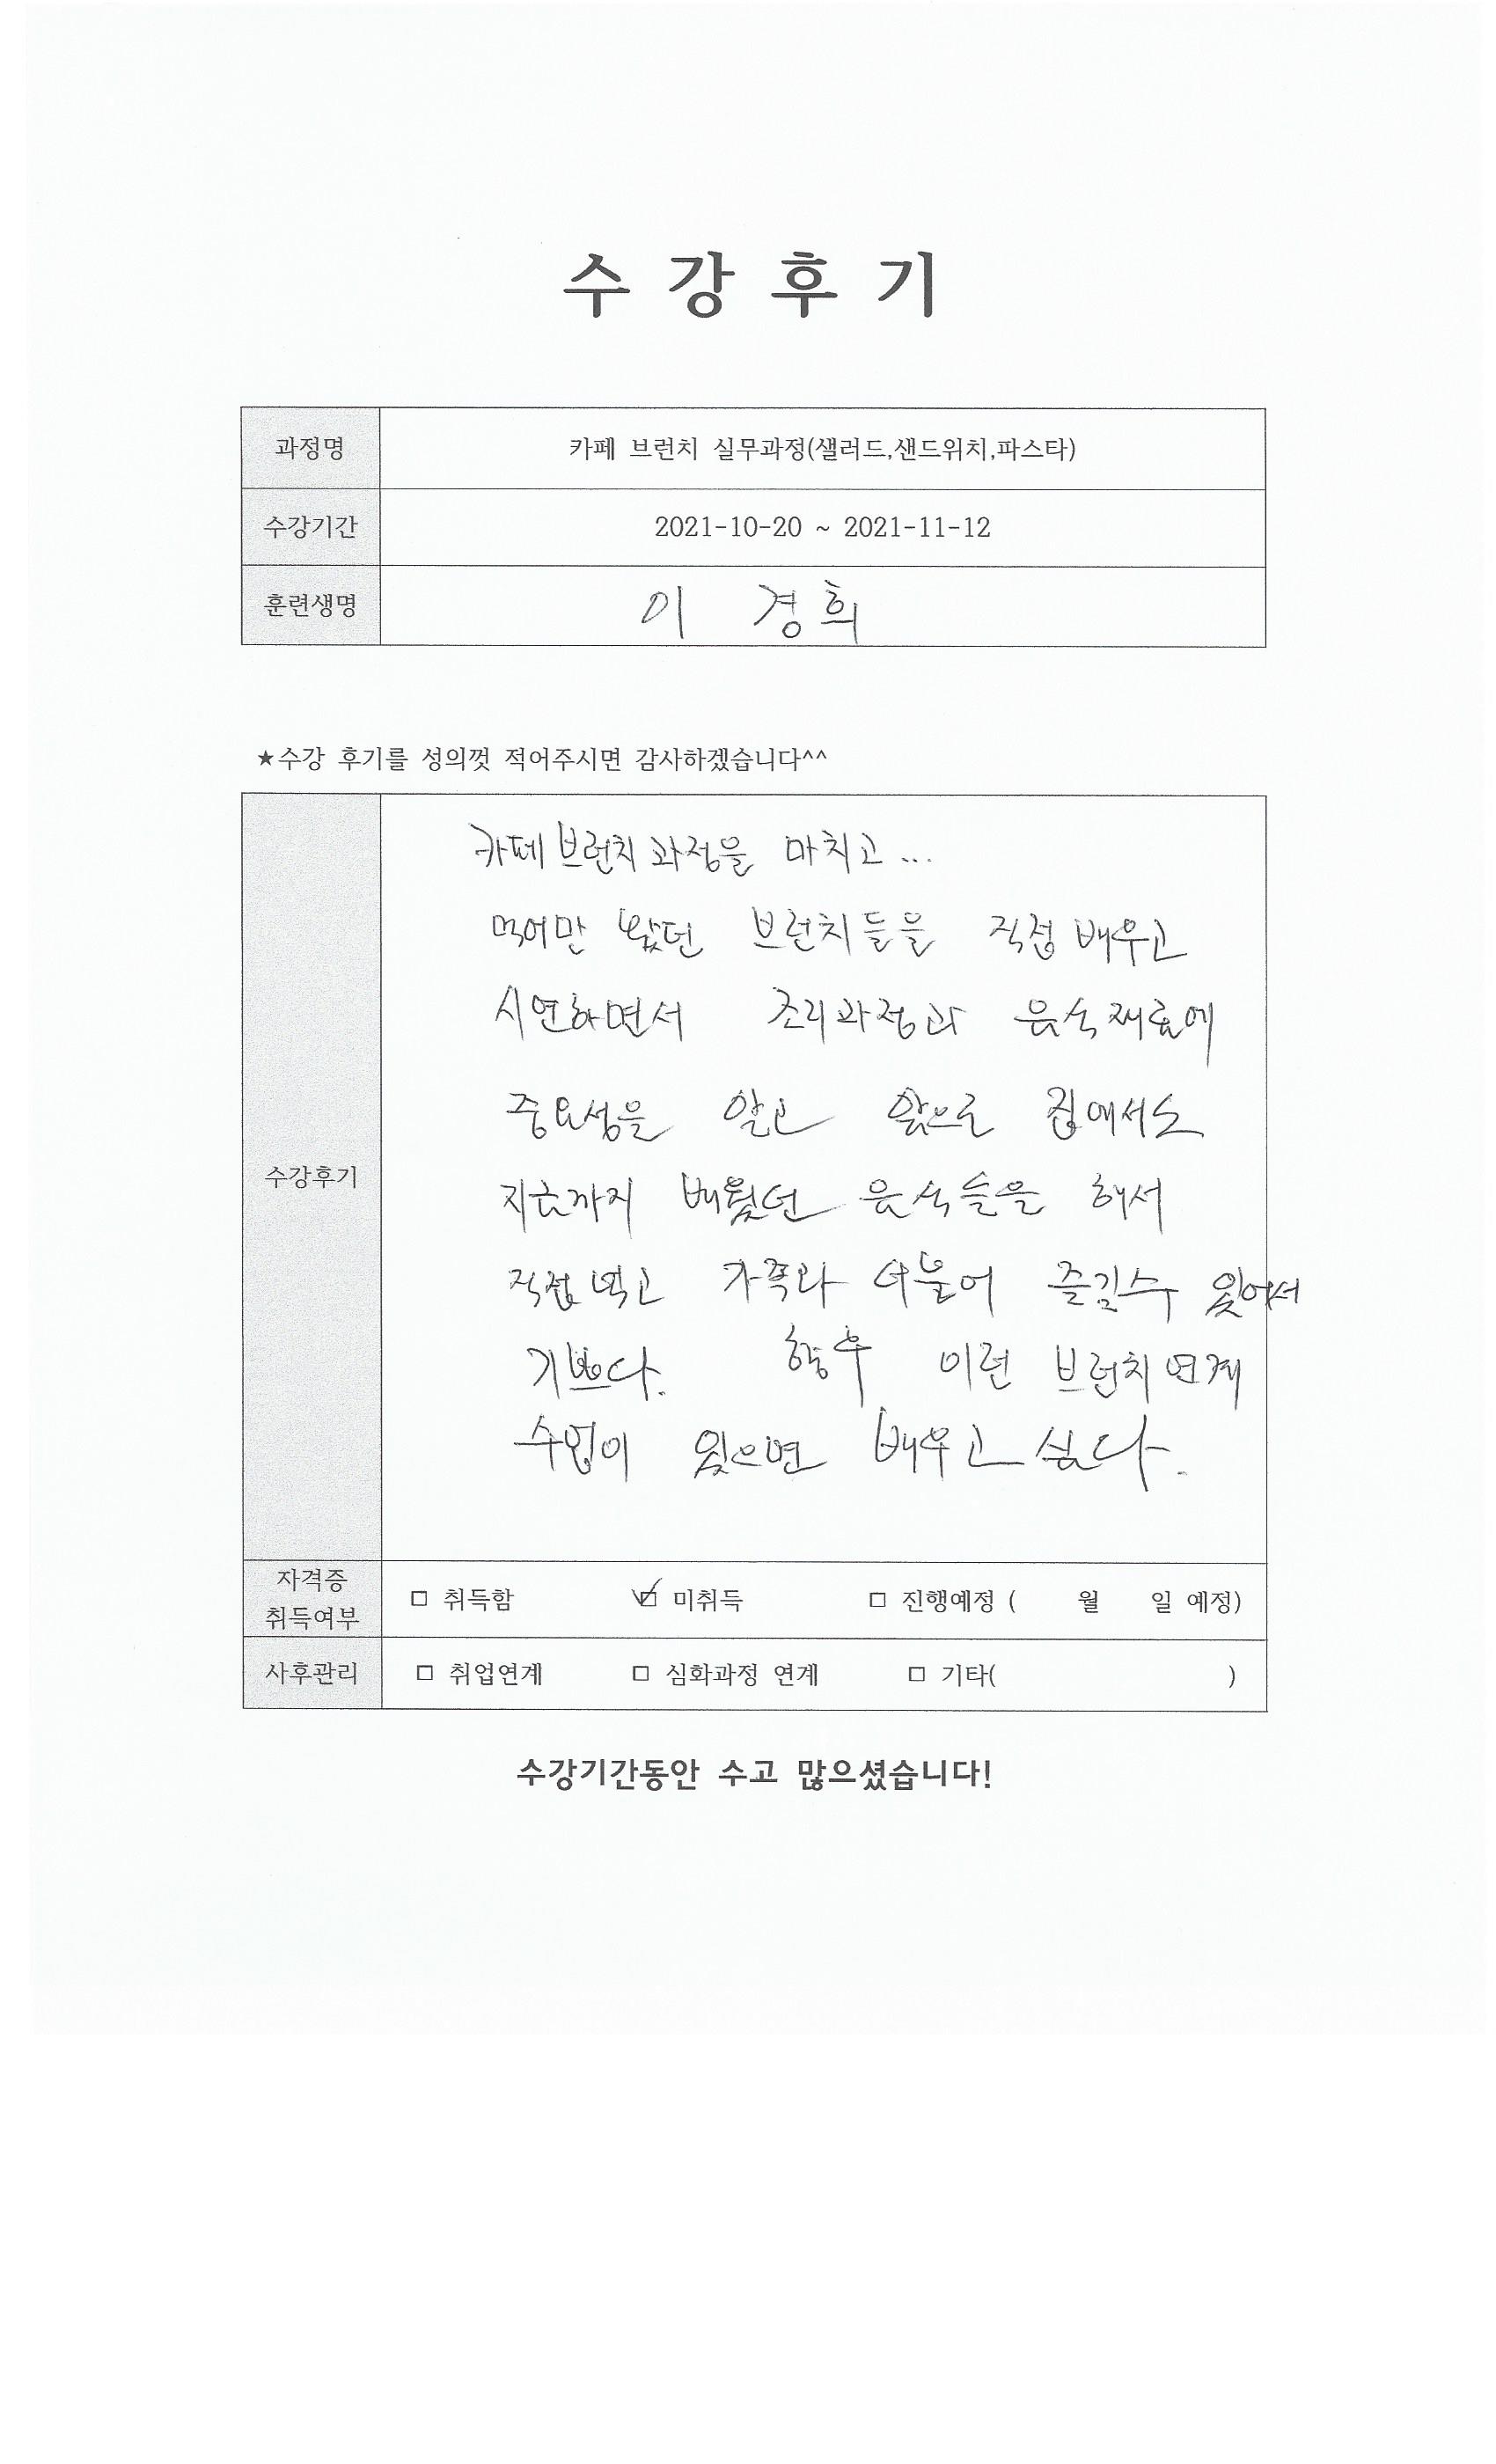 수 강 후 기
과정명 카페 브런치 실무과정(샐러드,샌드위치,파스타)
수강기간 2021-10-20 ~ 2021-11-12
훈련생명 이 경희
★수강 후기를 성의껏 적어주시면 감사하겠습니다^^
수강후기
카페브런치과정을 마치고...
먹어만 봤던 브런치들을 직접 배우고
시연하면서 조리과정과 음식재료에
중요성을 알고 앞으로 집에서도
지금까지 배웠던 음식들을 해서
직접먹고 가족과 더불어 즐길수 있어서
기쁘다. 향후 이런 브런치연계
수업이 있으면 배우고 싶다.
자격증 취득여부 □ 취득함 ☑ 미취득 □ 진행예정 ( 월 일 예정)
사후관리 □ 취업연계 □ 심화과정 연계 □ 기타( )
수강기간동안 수고 많으셨습니다!